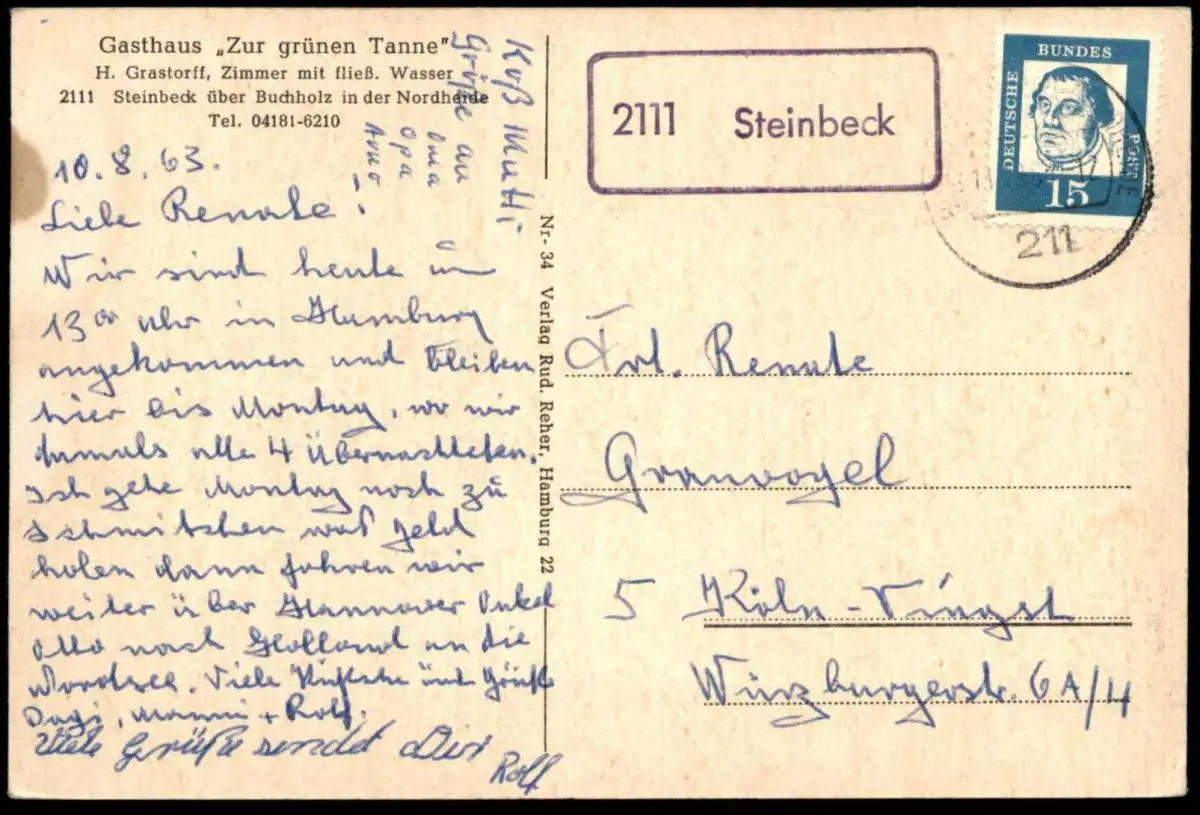 Gasthaus „Zur grünen Tanne"
H. Grastorff, Zimmer mit fließ. Wasser
2111 Steinbeck über Buchholz in der Nordheide
Tel. 04181-6210
10.8.63.
Liebe Renate!
Wir sind heute um
13 00 Uhr in Hamburg
angekommen und bleiben
hier bis Montag, wo wir
damals alle 4 übernachteten.
Ich gehe Montag noch zu
Schmitchen was Geld
holen dann fahren wir
weiter über Hannover Onkel
Otto nach Holland an die
Nordsee. Viele Küßchen und Grüße
Dagi, Manni + Rolf.
Viele Grüße sendet Dir
Rolf
Kuß Mutti
Grüße an
Oma
Opa
Arno
Nr. 34 Verlag Rud. Reher, Hamburg 22
2111 Steinbeck
DEUTSCHE
BUNDES
POST
15
211
Frl. Renate
Granvogel
5 Köln-Vingst
Würzburgerstr. 6A/4